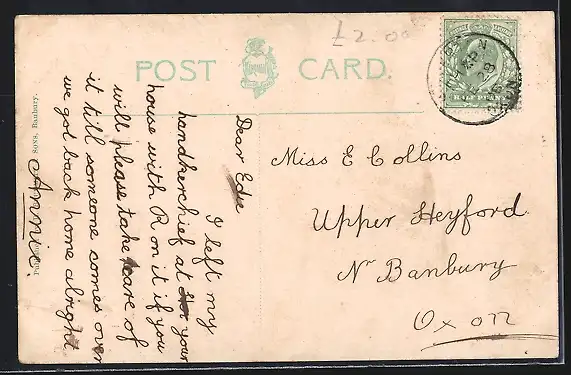 £2.00
POST CARD.
Dear Edie
I left my
handkerchief at your
house with R on it if you
will please take care of
it till someone comes over
we got back home alright
Annie.
Miss E Collins
Upper Heyford
Nr Banbury
Oxon
SONS, Banbury.